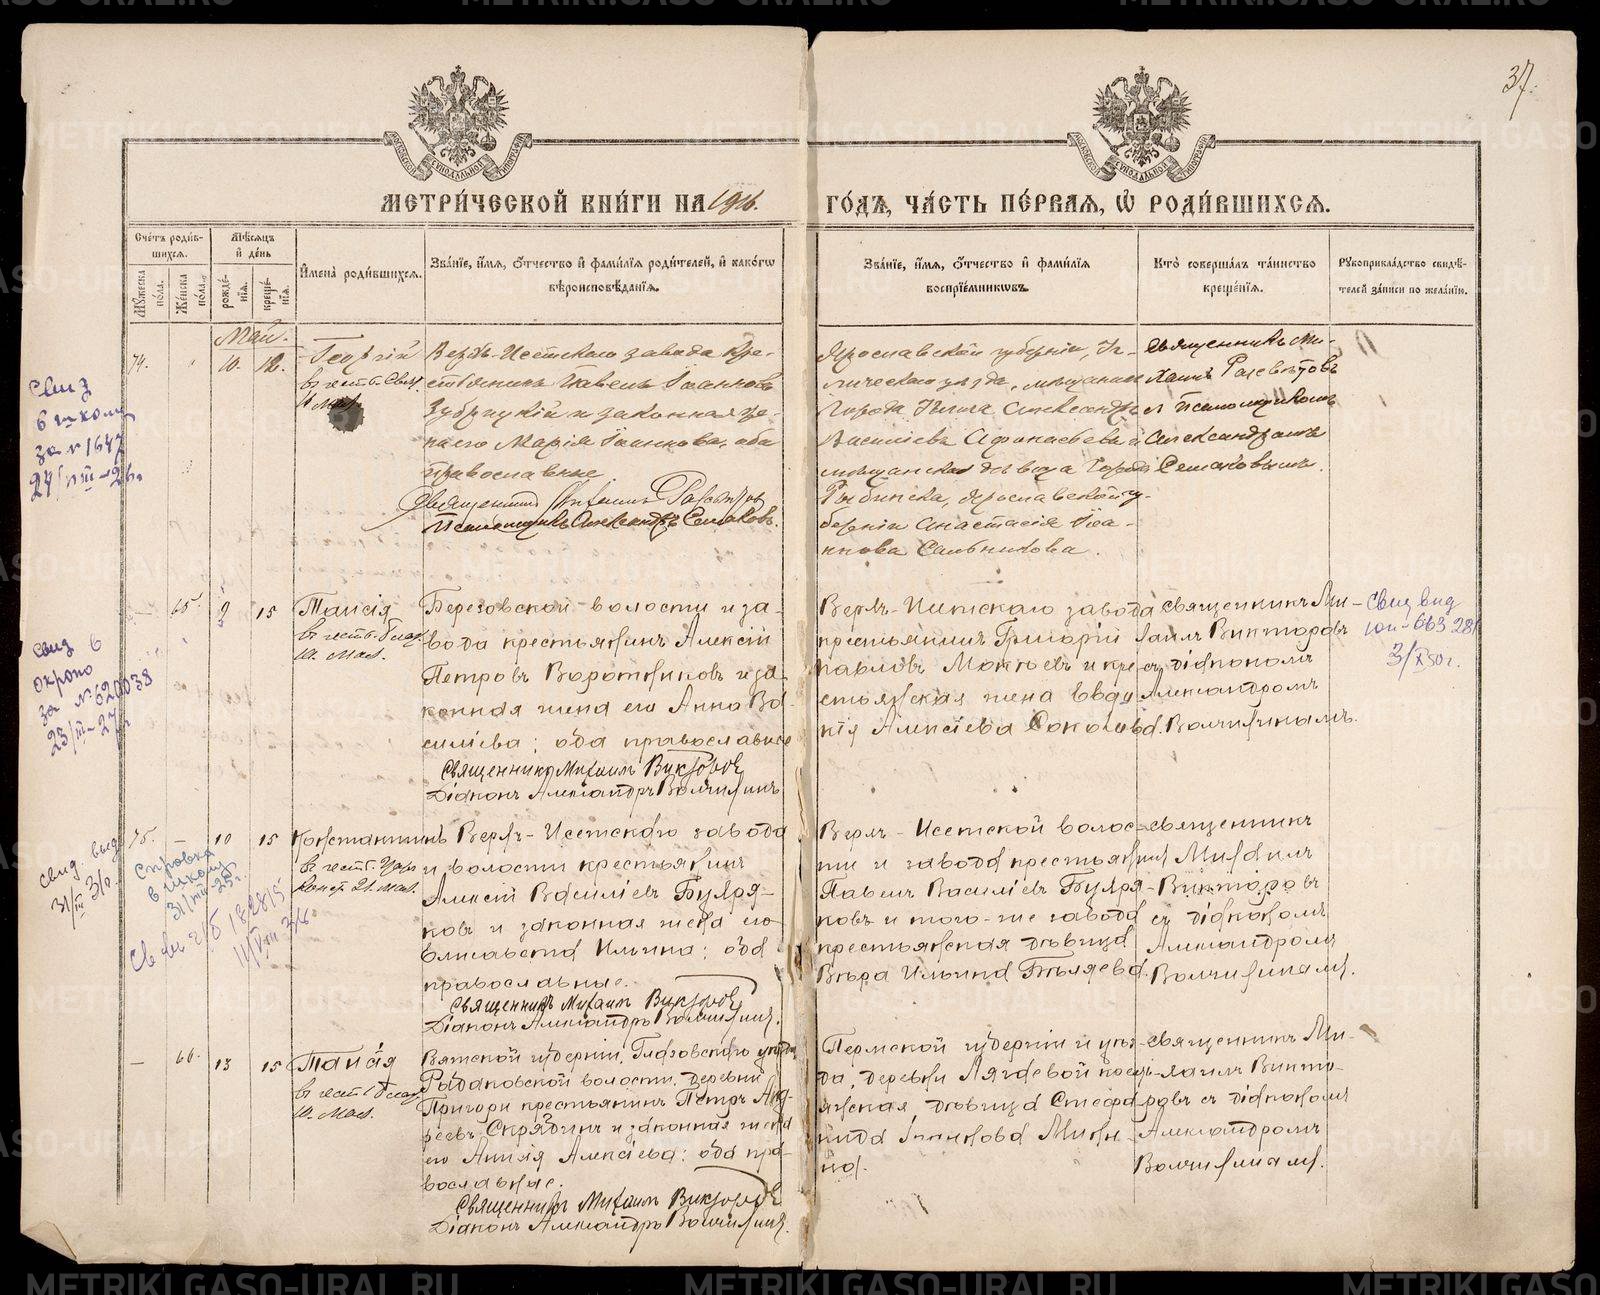 37.
МОСКОВСКОЙ СУНОДАЛЬНОЙ ТИПОГРАФІИ
МОСКОВСКОЙ СУНОДАЛЬНОЙ ТИПОГРАФІИ
МЕТРИ́ЧЕСКОЙ КНИ́ГИ НА 1916.
ГО́ДЪ, ЧА́СТЬ ПЕ́РВАЯ, Ѡ РОДИ́ВШИХСЯ.
Сче́тъ роди́в-
шихся.
Мѣ́сяцъ
и҆ де́нь
Му́жеска по́ла.
Же́нска по́ла.
рожде́-
нїя.
креще́-
нїя.
И҆мена̀ роди́вшихся.
Зва́нїе, и҆́мя, ѻ҆́тчество и҆ фами́лїя роди́телей, и҆ како́гѡ
вѣроисповѣ́данїя.
Зва́нїе, и҆́мя, ѻ҆́тчество и҆ фами́лїя
воспрїе́мниковъ.
Кто̀ соверша́лъ та́инство
креще́нїя.
Рꙋкоприкла́дство свидѣ́-
телей за́писи по жела́нїю.
Май.
74.
10.
12.
Георгій
въ честь Свящ.
Верхъ-Исетскаго завода кре-
стьянинъ Павелъ Іоанновъ
Зубрицкій и законная же-
на его Марія Іоаннова, оба
православные
Священникъ Михаилъ Разсвѣтовъ
Псаломщикъ Александръ Семаковъ.
Ярославской губерніи, Уг-
лическаго уѣзда, мѣщанинъ
Города Углича Александръ
Василіевъ Афанасьевъ и
мѣщанская дѣвица Города
Рыбинска, Ярославской гу-
берніи Анастасія Іоан-
нова Сальникова.
Священникъ Ми-
хаилъ Разсвѣтовъ
съ Псаломщикомъ
Александромъ
Семаковымъ.
65.
9
15
Таисія
въ честь Блаж.
10. Мая.
Березовской волости и за-
вода крестьянинъ Алексій
Петровъ Воротниковъ и за-
конная жена его Анна Ва-
силіева; оба православные
Священникъ Михаилъ Викторовъ
Діаконъ Александръ Волчихинъ
Верхъ-Исетскаго завода
крестьянинъ Григорій
Павловъ Мокѣевъ и кре-
стьянская жена Евдо-
кія Алексіева Соколова.
Священникъ Ми-
хаилъ Викторовъ
съ діакономъ
Александромъ
Волчихинымъ.
75.
10
15
Константинъ
въ честь Царя
Конст. 21. Мая.
Верхъ-Исетскаго завода
и волости крестьянинъ
Алексій Василіевъ Будря-
ковъ и законная жена его
Елисавета Ильина; оба
православные.
Священникъ Михаилъ Викторовъ
Діаконъ Александръ Волчихинъ.
Верхъ-Исетской волос-
ти и завода крестьянинъ
Павелъ Василіевъ Будря-
ковъ и того-же завода
крестьянская дѣвица
Вѣра Ильина Бѣляева.
священникъ
Михаилъ
Викторовъ
съ діакономъ
Александромъ
Волчихинымъ.
66.
13
15
Таисія
въ честь Блаж.
10. Мая.
Вятской губерніи, Глазовскаго уѣзда
волости, деревни
Пригори крестьянинъ Петръ Анд-
реевъ Скрябинъ и законная жена
его Анисія Алексіева; оба пра-
вославные.
Священникъ Михаилъ Викторовъ
Діаконъ Александръ Волчихинъ.
Пермской губерніи и уѣз-
да, деревни Лягаевой крестьянская
дѣвица Стефа-
нида Іоаннова Микн-
на.
священникъ Ми-
хаилъ Викто-
ровъ съ діакономъ
Александромъ
Волчихинымъ.
свид
в школу
за № 1647
24/VIII-26
свид в
за № 620038
23/III-27г
свид. выд
31/III 31г.
справка
в школу
31/VIII-25г.
свид вид
юл-663 281
3/X 50г.
METRIKI.GASO-URAL.RU